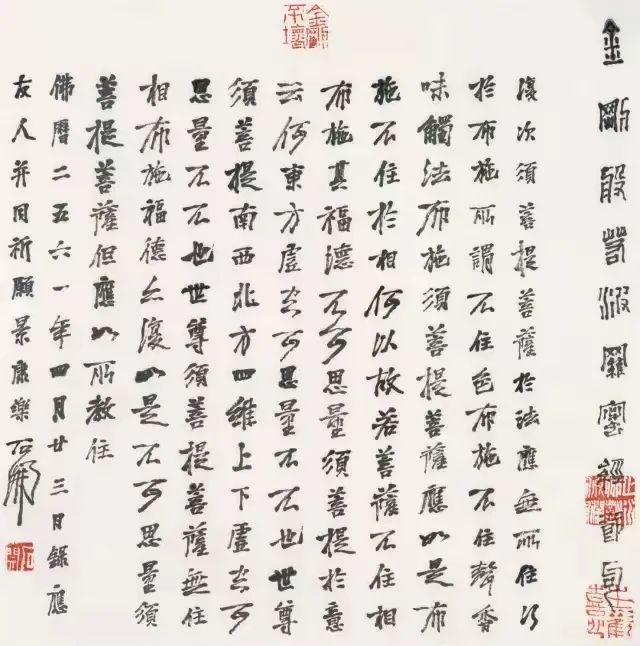 金剛不壞
金剛般若波羅蜜經節句
復次須菩提菩薩於法應無所住行
於布施所謂不住色布施不住聲香
味觸法布施須菩提菩薩應如是布
施不住於相何以故若菩薩不住相
布施其福德不可思量須菩提於意
云何東方虛空可思量不不也世尊
須菩提南西北方四維上下虛空可
思量不不也世尊須菩提菩薩無住
相布施福德亦復如是不可思量須
菩提菩薩但應如所教住
佛曆二五六一年四月廿三日錄應
友人并同祈願景康樂 石開
石開